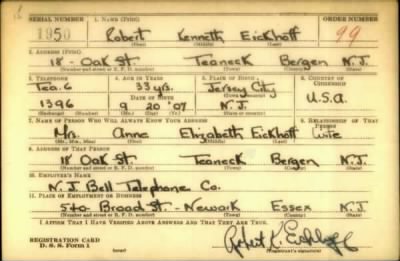 SERIAL NUMBER 1. NAME (Print) ORDER NUMBER
1950 Robert Kenneth Eickhoff 99
(First) (Middle) (Last)
2. ADDRESS (Print)
18 - Oak St. Teaneck Bergen N.J.
(Number and street or R. F. D. number) (Town) (County) (State)
3. TELEPHONE 4. AGE IN YEARS 5. PLACE OF BIRTH 6. COUNTRY OF CITIZENSHIP
Tea. 6 33 yrs. Jersey City
DATE OF BIRTH (Town or county) U.S.A.
1396 9 20 '07 N.J.
(Exchange) (Number) (Mo.) (Day) (Yr.) (State or country)
7. NAME OF PERSON WHO WILL ALWAYS KNOW YOUR ADDRESS 8. RELATIONSHIP OF THAT PERSON
Mrs. Anne Elizabeth Eickhoff Wife
(Mr., Mrs., Miss) (First) (Middle) (Last)
9. ADDRESS OF THAT PERSON
18 Oak St. Teaneck Bergen N.J.
(Number and street or R. F. D. number) (Town) (County) (State)
10. EMPLOYER'S NAME
N.J. Bell Telephone Co.
11. PLACE OF EMPLOYMENT OR BUSINESS
540 Broad St. - Newark Essex N.J.
(Number and street or R. F. D. number) (Town) (County) (State)
I AFFIRM THAT I HAVE VERIFIED ABOVE ANSWERS AND THAT THEY ARE TRUE.
REGISTRATION CARD
D. S. S. Form 1 (over) Robert K. Eickhoff
(Registrant's signature)